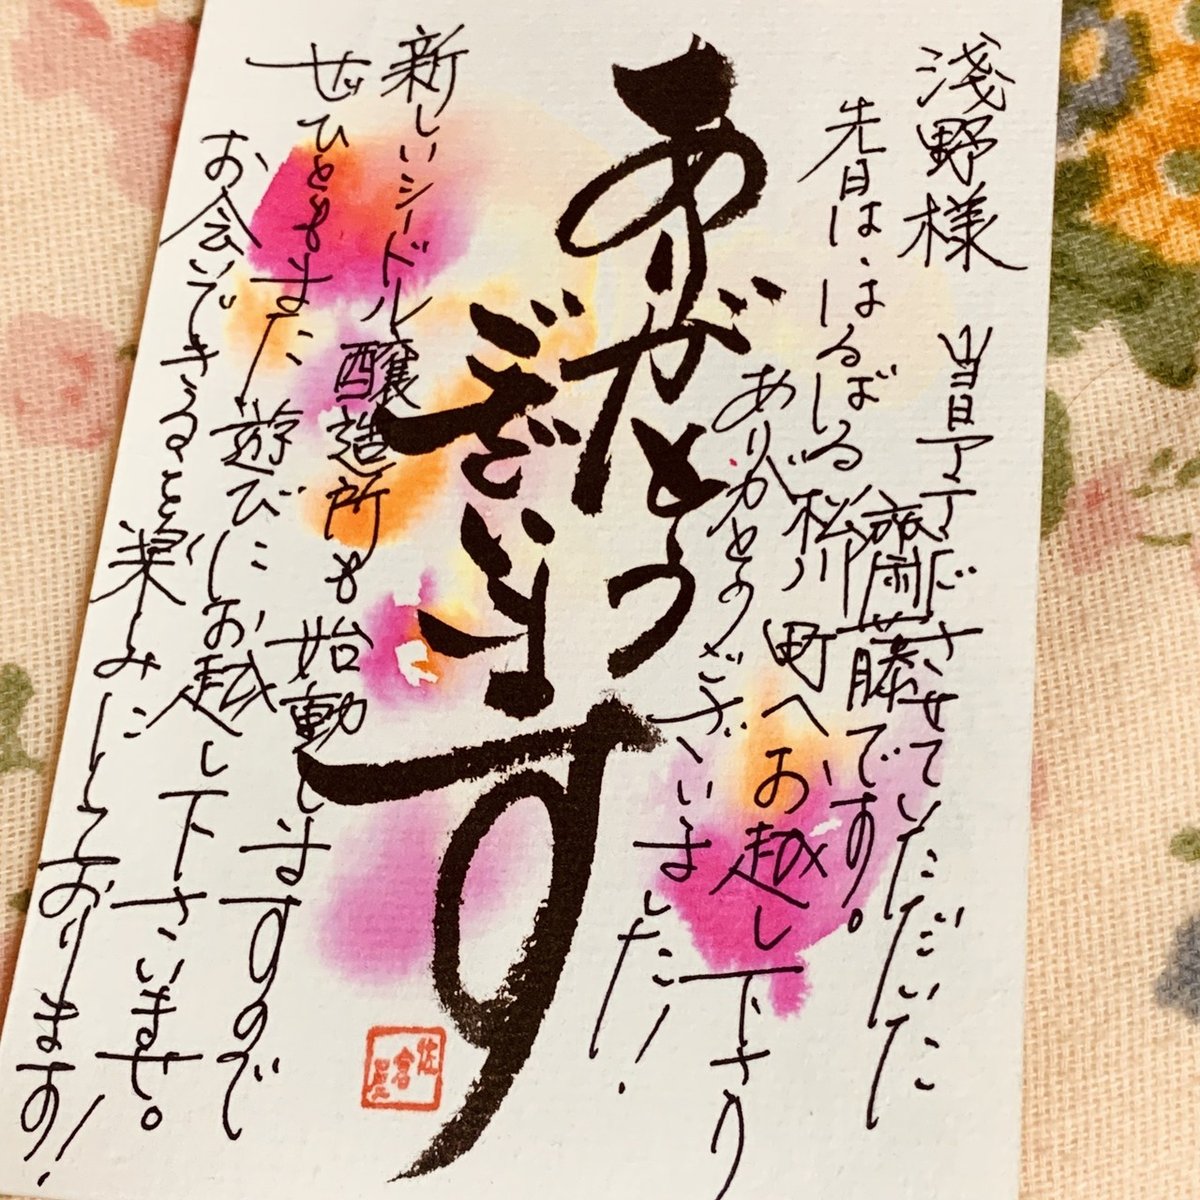 浅野様
当日アテンドさせていただいた
齋藤です。
先日は、はるばる松川町へお越し下さり
ありがとうございました!
ありがとう
ございます
新しいシードル醸造所も始動しますので
ぜひともまた遊びにお越し下さいませ。
お会いできることを楽しみにしております!